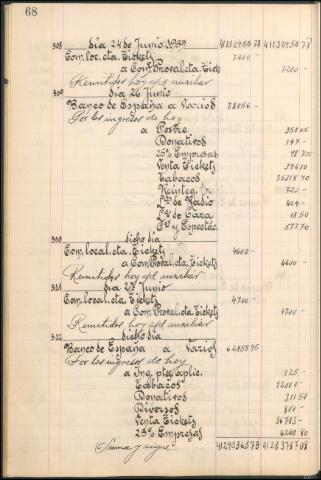 68
308 día 24 de Junio, 1939 41132950 78 41132950 78
Com. loc. cta. Tickets 7200 -
a Com. Proval. cta. Tick 7200 -
Remitidos hoy a/f auxiliar
309 día 26 Junio
Banco de España a Varios 78056 -
Por los ingresos de hoy
a Postre 350 05
Donativos 147 -
25% Empresas 98 75
Venta Tickets
Tabacos
Reinteg.
de Radio 404 -
de Cara 18 50
y Espectác 577 70
dicho día
Com. local. cta. Tickets 4600 -
a Com. Proval. cta. Tickets 4600 -
Remitidos hoy a/f auxiliar
día 27 Junio
Com. local. cta. Tickets 4700 -
a Com. Proval. cta. Tickets 4700 -
Remitidos hoy a/f auxiliar
dicho día
Banco de España a Varios 62858 95
Por los ingresos de hoy
a Ing. ptes. aplic. 125 -
Tabacos
Donativos 311 50
Diversos 800 -
Venta Tickets
25% Empresas
Suma y sigue 41290365 73 41283787 08